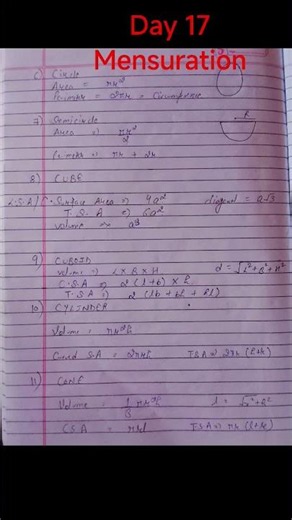 Day 17
Mensuration
6) Circle
Area = πr²
Perimeter = 2πr = Circumference
7) Semicircle
Area ⇒ πr²/2
Perimeter ⇒ πr + 2r
8) CUBE
L.S.A/C. Surface Area ⇒ 4a² diagonal = a√3
T.S.A ⇒ 6a²
Volume = a³
9) CUBOID
Volume ⇒ L x B x H
C.S.A ⇒ 2 (l+b) x h
T.S.A ⇒ 2 (lb + bh + hl)
10) CYLINDER
Volume = πr²h
Curved S.A = 2πrh TSA ⇒ 2πr (h+r)
11) CONE
Volume = 1/3 πr²h
CSA = πrl